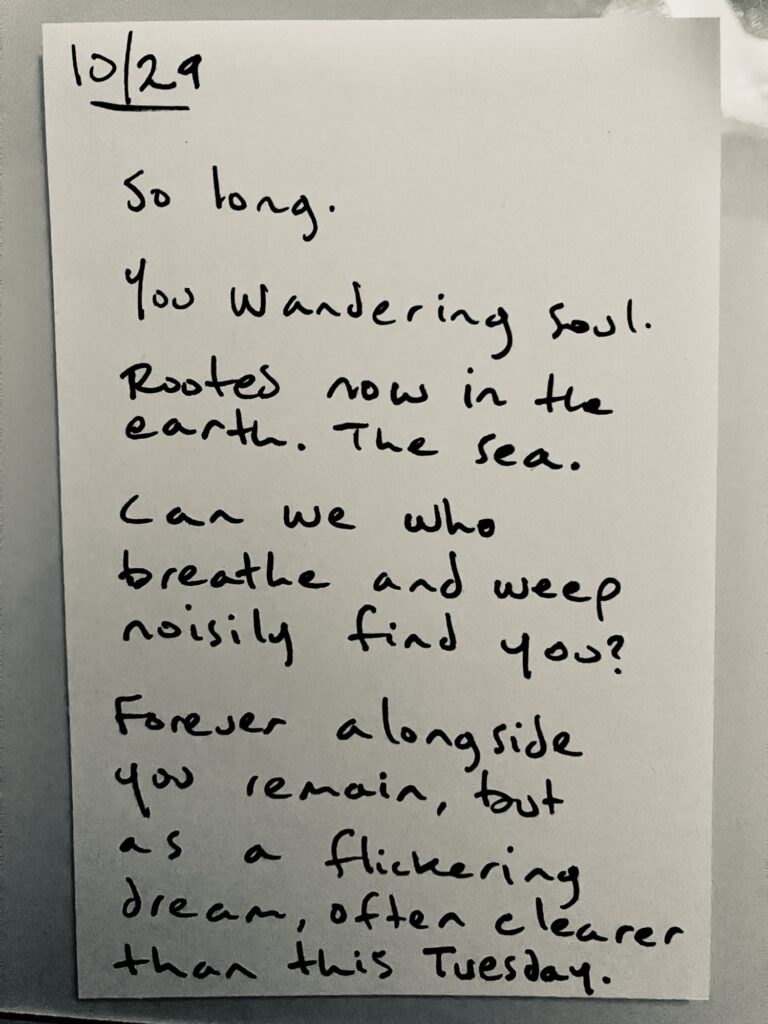 10/29
So long.
You wandering soul.
Rooted now in the
earth. The sea.
Can we who
breathe and weep
noisily find you?
Forever alongside
you remain, but
as a flickering
dream, often clearer
than this Tuesday.